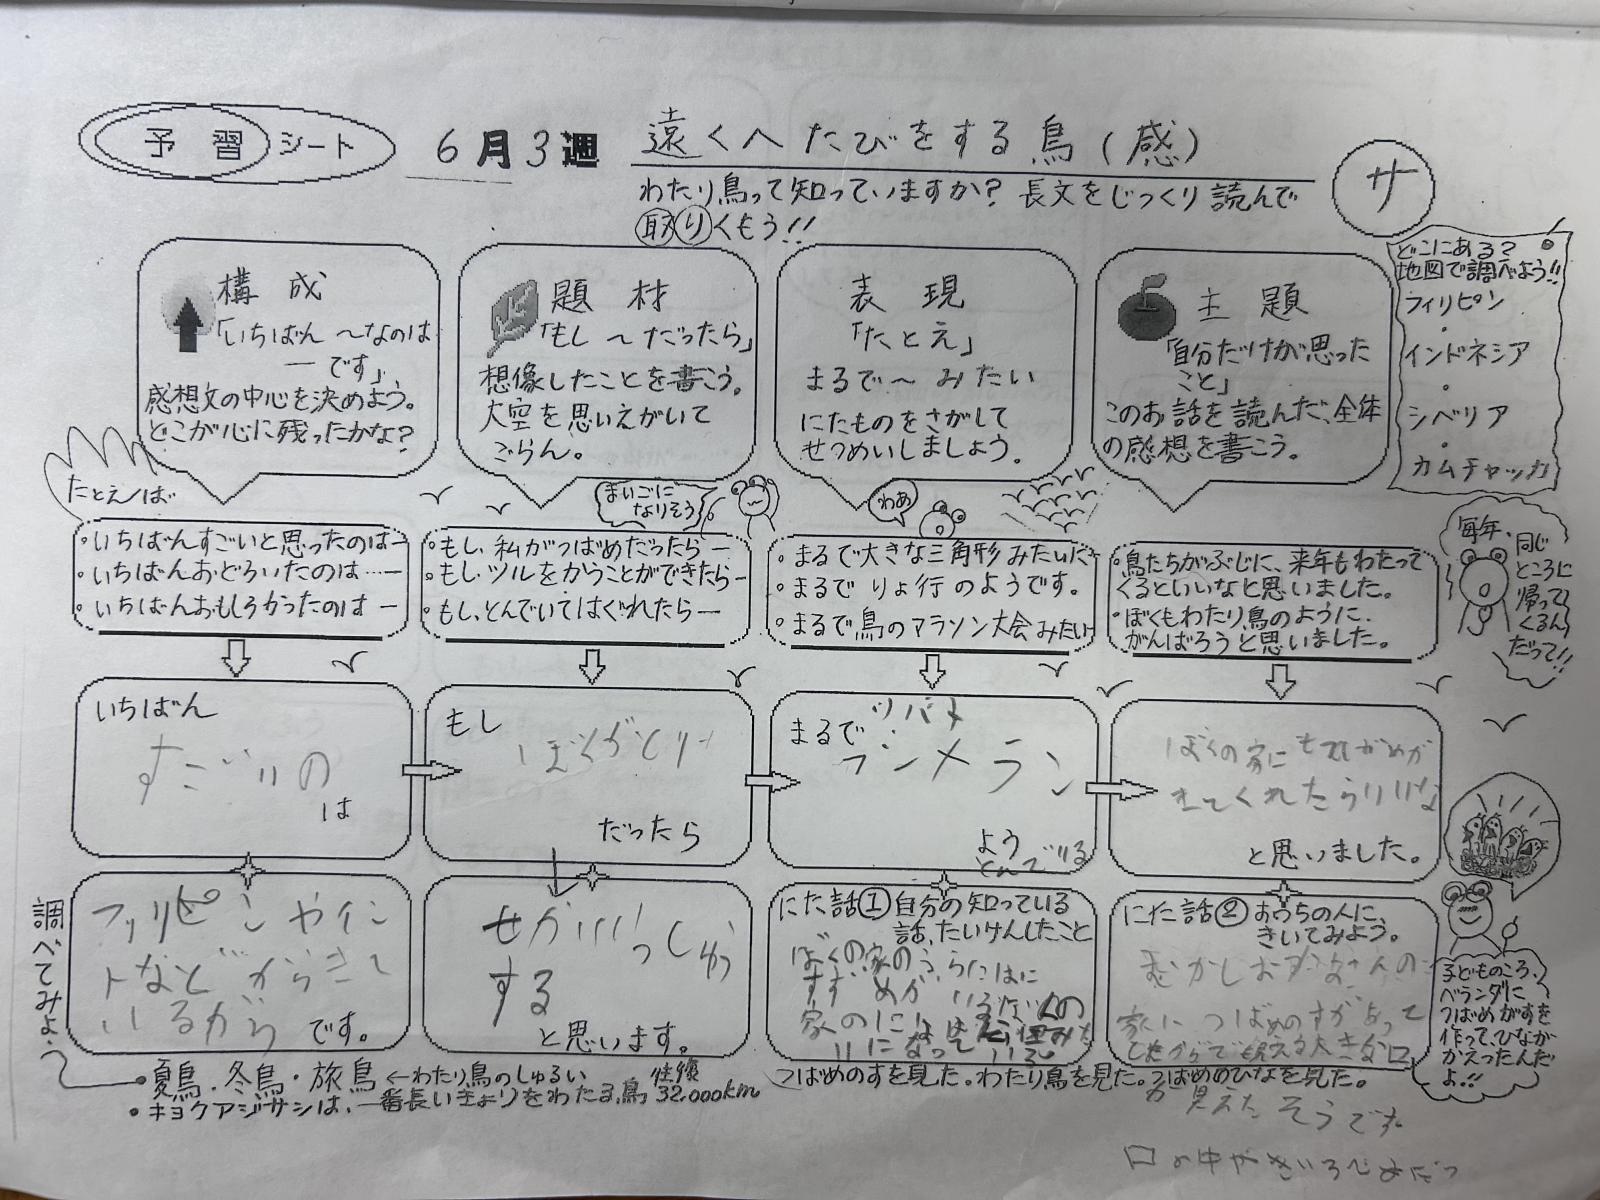 予習シート
6月3週
遠くへたびをする鳥(感)
サ
わたり鳥って知っていますか?長文をじっくり読んで
取りくもう!!
構成
「いちばん 〜なのは
―です」
感想文の中心を決めよう。
どこが心に残ったかな?
題材
「もし 〜だったら」
想像したことを書こう。
大空を思いえがいて
ごらん。
表現
「たとえ」
まるで〜みたい
にたものをさがして
せつめいしましょう。
主題
「自分だけが思った
こと」
このお話を読んだ、全体
の感想を書こう。
どこにある?
地図で調べよう!!
フィリピン
・
インドネシア
・
シベリア
・
カムチャッカ
たとえば
・いちばんすごいと思ったのは―
・いちばんおどろいたのは…―
・いちばんおもしろかったのは―
まいごに
なりそう。
・もし、私がつばめだったら―
・もし、ツルをかうことができたら―
・もし、とんでいてはぐれたら―
わあ
・まるで大きな三角形みたいだ
・まるでりょ行のようです。
・まるで鳥のマラソン大会みたい
・鳥たちがぶじに、来年もわたって
くるといいなと思いました。
・ぼくもわたり鳥のように、
がんばろうと思いました。
毎年、同じ
ところに
帰って
くるん
だって!!
いちばん
すごいの
は
もし
ぼくがとり
だったら
まるで
ツバメ
ブーメラン
よう
とんでいる
ぼくの家にも
きてくれたらいいな
と思いました。
調べてみよう
フィリピンやイン
ドなどからきて
いるから
です。
せかいいっしゅう
する
と思います。
にた話① 自分の知っている
話、たいけんしたこと
ぼくの家の
すずめが
家の
にた話② おうちの人に、
きいてみよう。
むかしお
家につばめのすがあって
大きな口
が見えたそうです。
口の中
子どものころ、
ベランダに
つばめがすを
作って、ひな
がかえったんだ
よ!!
・夏鳥・冬鳥・旅鳥 ←わたり鳥のしゅるい
・キョクアジサシは、一番長いきょりをわたる鳥 往復 32,000km
つばめのすを見た。わたり鳥を見た。つばめのひなを見た。